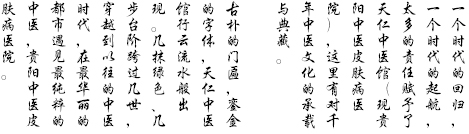 一个时代的回归，
一个时代的起航，
太多的责任赋予了
天仁中医馆（现贵
阳中医皮肤病医
院），这里有对千
年中医文化的承载
与典藏。
古朴的门匾，鎏金
的字体，天仁中医
馆行云流水般出
现。几抹绿色、几
步台阶跨过几世，
穿越到以往的中医
时代，在最华丽的
都市遇见最纯粹的
中医，贵阳中医皮
肤病医院。